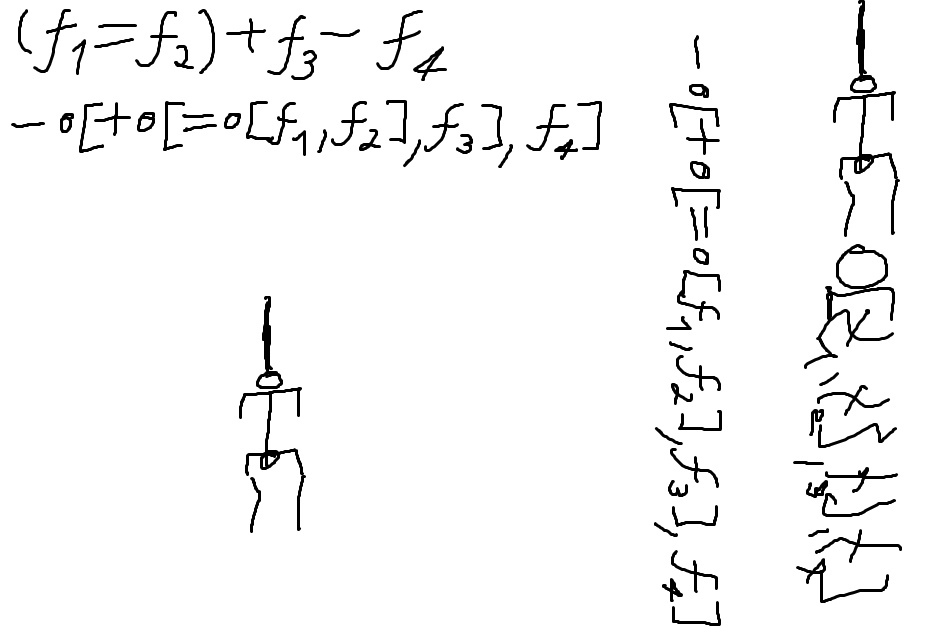 (f₁=f₂)+f₃-f₄
-o[+o[=o[f₁,f₂],f₃],f₄]
-o[+o[=o[f₁,f₂],f₃],f₄]